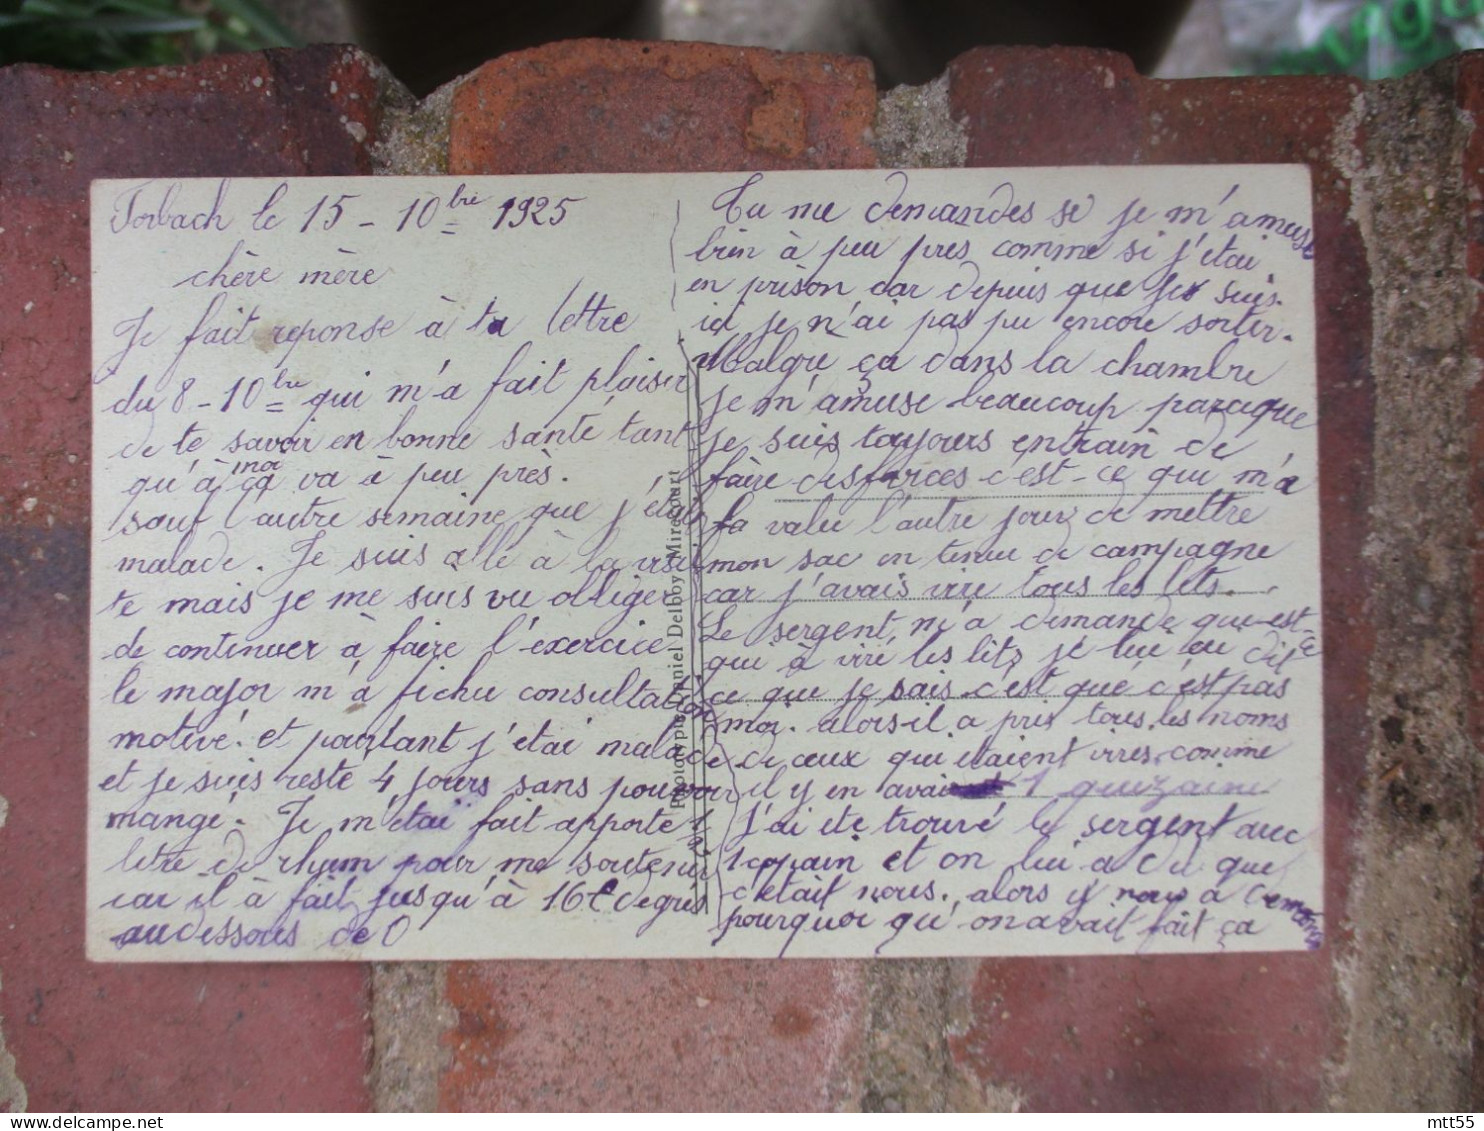 Forbach le 15 - 10bre 1925
chère mère
Je fait reponse à ta lettre
du 8 - 10bre qui m'a fait plaisir
de te savoir en bonne santé, tant
qu'à moi ça va à peu près.
sauf l'autre semaine que j'étai
malade. Je suis allé à la visi
te mais je me suis vu obliger
de continuer à faire l'exercice
le major m'a fichu consultation
motivé. et pourtant j'étai malade
et je suis resté 4 jours sans pouvoir
mangé. Je m'étai fait apporté
litre de rhum pour me soutenir
car il à fait jusqu'à 16 degrés
au dessous de 0
Tu me demandes si je m'amuse
bien à peu près comme si j'étai
en prison car depuis que je suis
ici je n'ai pas pu encore sortir.
Malgré ça dans la chambre
je m'amuse beaucoup parceque
je suis toujours entrain de
faire des farces c'est-ce qui m'a
fa value l'autre jour de mettre
mon sac en tenue de campagne
car j'avais viré tous les lits.
Le sergent, m'a demandé qui-est-ce
qui à viré les litz je lui ai dit
ce que je sais c'est que c'est pas
moi. alors-il a pris tous les noms
de ceux qui étaient virés, comme
il y en avai 1 quizaine
J'ai été trouvé le sergent avec
1 copain et on lui a dit que
c'était nous. alors y nous a demandé
pourquoi qu'on avait fait ça
Phototypie Daniel Delboy, Mirecourt
mtt55